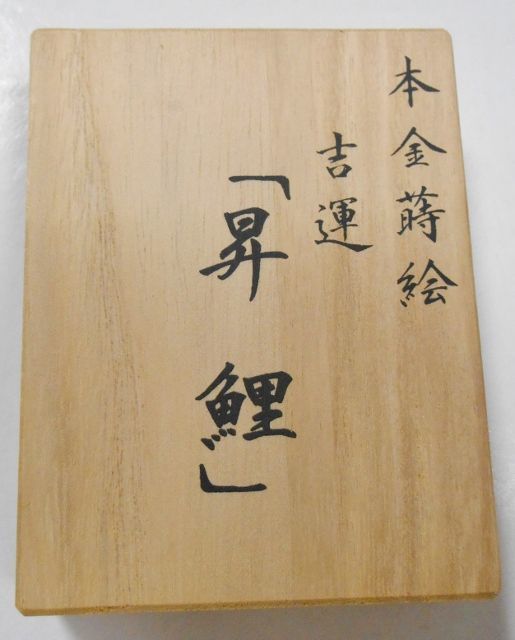 本金蒔絵
吉運
「昇鯉」